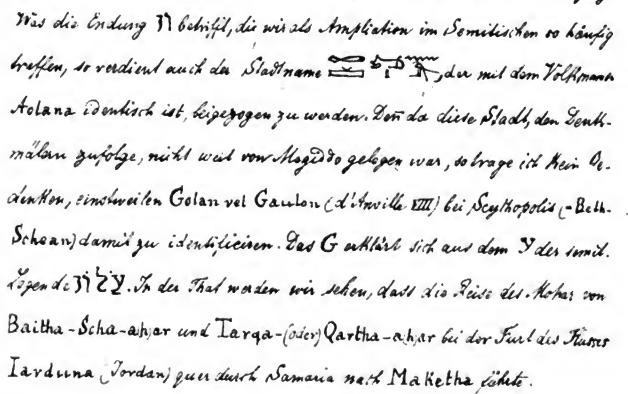 Was die Endung ןו betrifft, die wir als Ampliation im Semitischen so häufig
treffen, so verdient auch der Stadtname , der mit dem Volksnamen
Aolana identisch ist, beigezogen zu werden. Deñ da diese Stadt, den Denk-
mälern zufolge, nicht weit von Megiddo gelegen war, so trage ich kein Be-
denken, einstweilen Golan vel Gaulon (d'Anville VIII) bei Scythopolis (-Beth-
Schean) damit zu identificiren. Das G erklärt sich aus dem ע der semit.
Legende . In der That werden wir sehen, dass die Reise des Mohar von
Baitha-Scha-a(h)ar und Tarqa-(oder) Qartha-a(h)ar bei der Furt des Flusses
Iarduna (Jordan) quer durch Samaria nach Maketha führte.